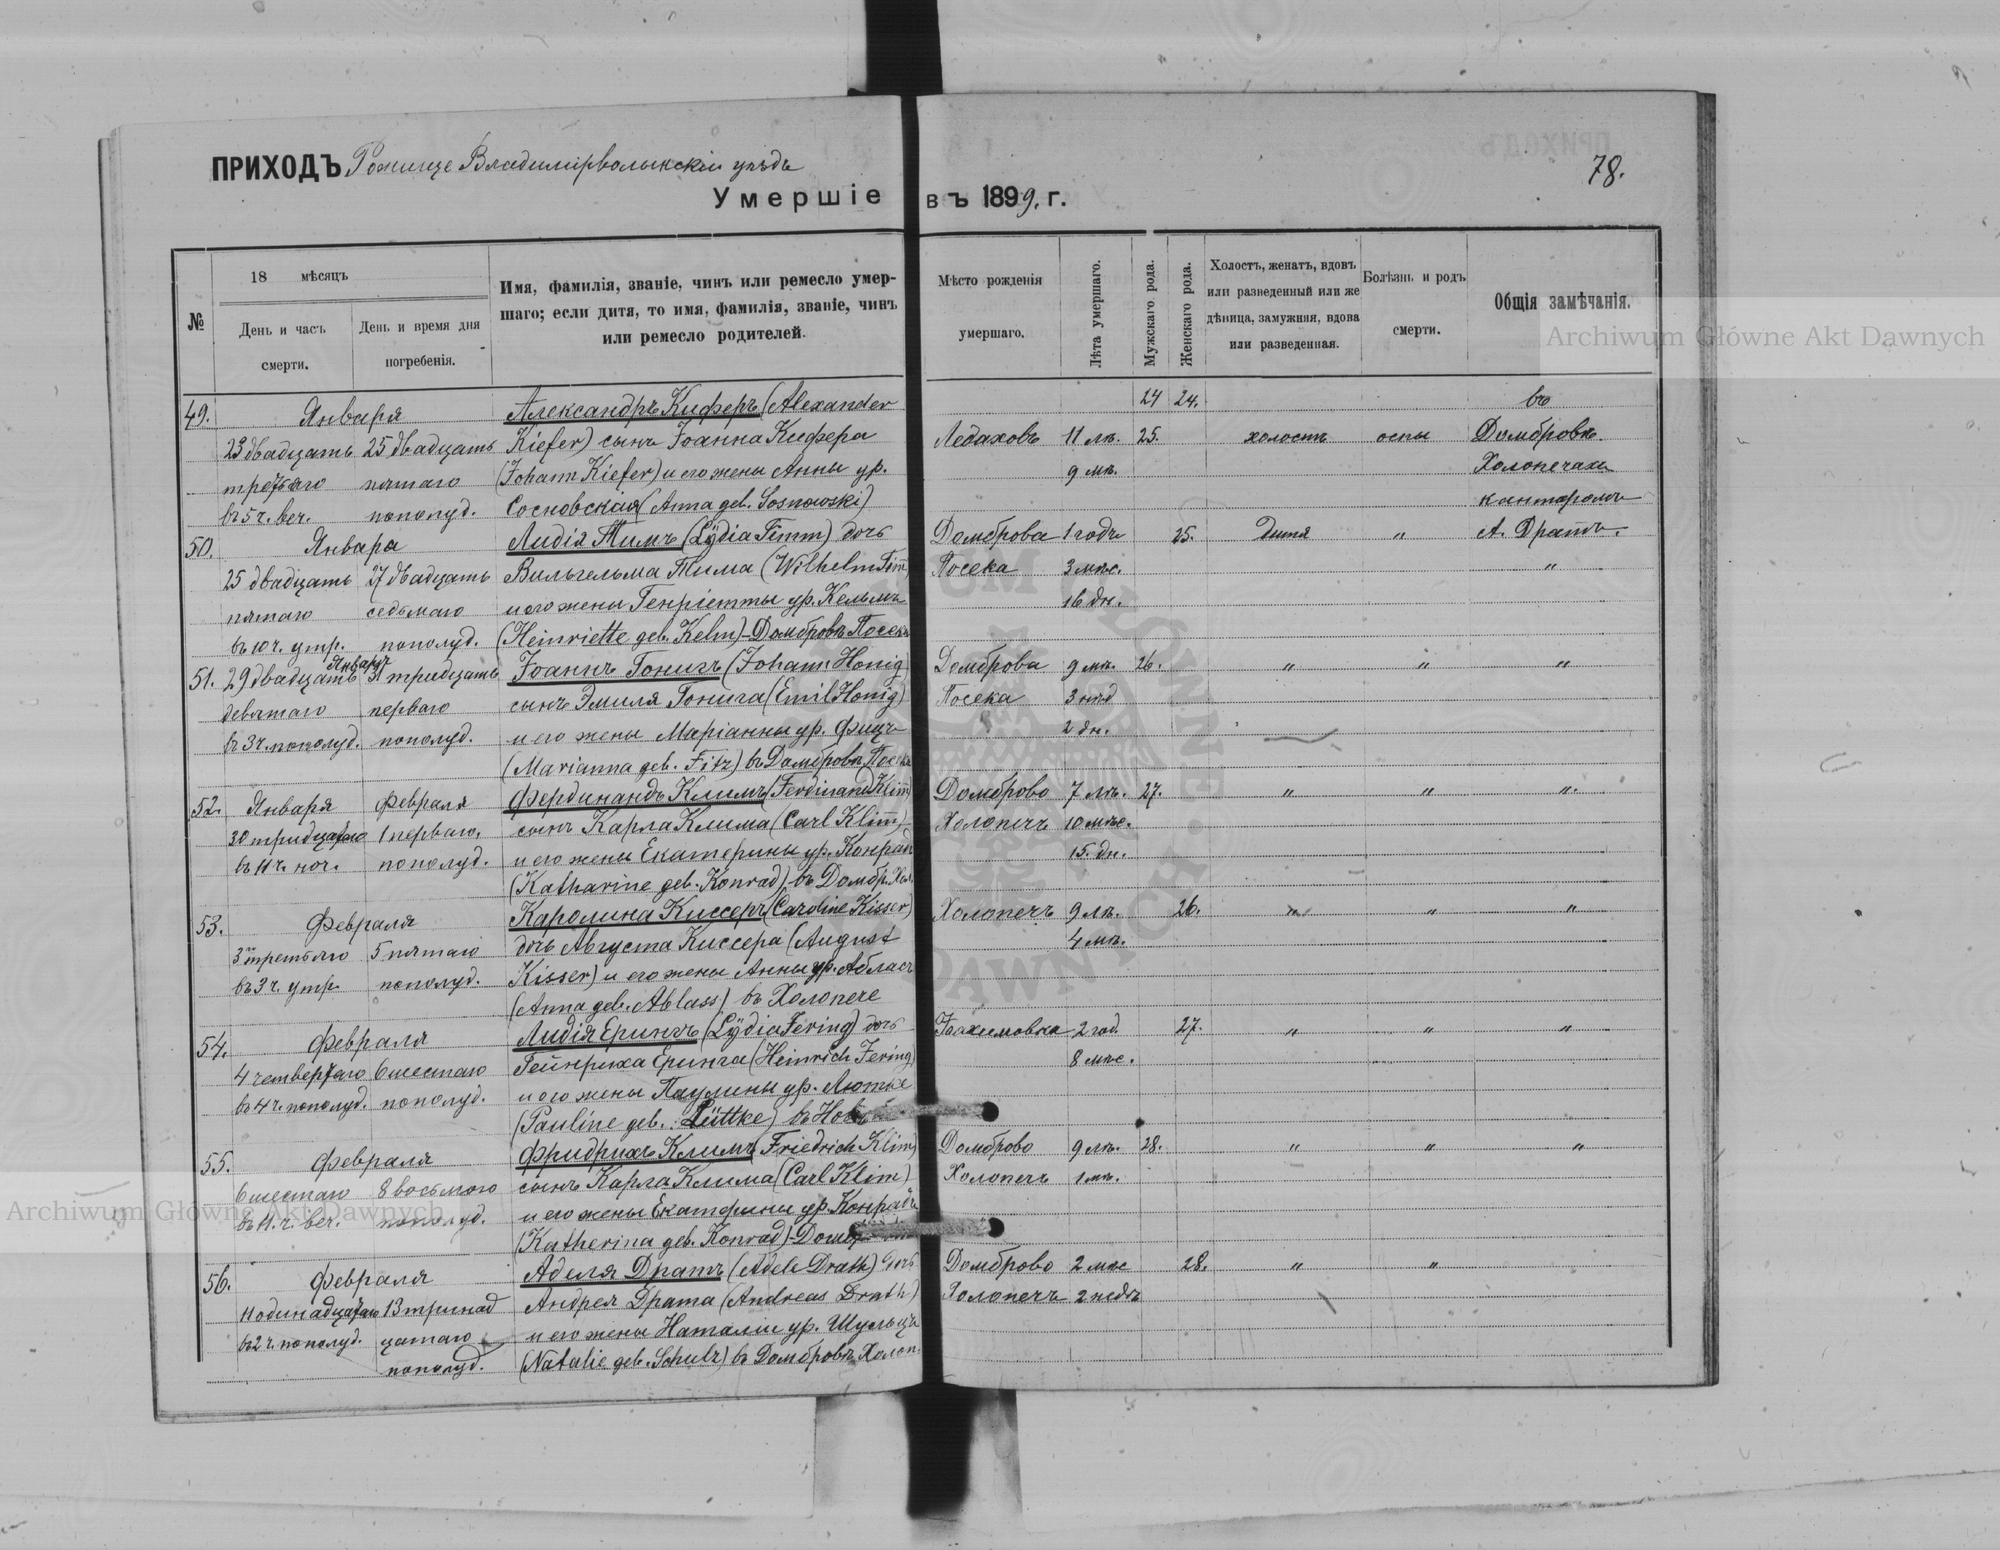 ПРИХОДЪ Рожище Владимірволынскій уѣздъ
78.
Умершіе въ 1899. г.
№
18 мѣсяцъ
День и часъ смерти.
День и время дня погребенія.
Имя, фамилія, званіе, чинъ или ремесло умер-
шаго; если дитя, то имя, фамилія, званіе, чинъ
или ремесло родителей.
Мѣсто рожденія
умершаго.
Лѣта умершаго.
Мужскаго рода.
Женскаго рода.
Холостъ, женатъ, вдовъ
или разведенный или же
дѣвица, замужняя, вдова
или разведенная.
Болѣзнь и родъ
смерти.
Общія замѣчанія.
Archiwum Główne Akt Dawnych
49. Января Александръ Киферъ (Alexander 24 24. въ
23 двадцать 25 двадцать Kiefer) сынъ Іоанна Кифера Ледаховъ 11 лѣ. 25. холостъ оспы Домбровѣ
третьяго пятаго (Johann Kiefer) и его жены Анны ур. 9 мѣ. Холопечахъ
въ 5 ч. веч. пополуд. Сосновская (Anna geb. Sosnowski) канторомъ
50. Января Лидія Тимъ (Lÿdia Timm) дочь Домброва 1 годъ 25. дитя " А. Дратъ.
25 двадцать 27 двадцать Вильгельма Тима (Wilhelm Tim̅) Посека 3 мѣс. "
пятаго седьмаго и его жены Генріетты ур. Кельмъ 16 дн.
въ 10 ч. утр. пополуд. (Heinriette geb. Kelm) - Домбровѣ Посека
51. Января
29 двадцать 31 тридцать Іоаннъ Гонигъ (Johann Honig) Домброва 9 мѣ. 26. " " "
девятаго перваго сынъ Эмиля Гонига (Emil Honig) Посека 3 нѣд
въ 3 ч. пополуд. пополуд. и его жены Маріанны ур. Фицъ 2 дн.
(Marianna geb. Fitz) въ Домбровѣ Посека
52. Января Февраля Фердинандъ Климъ (Ferdinand Klim) Домброво 7 лѣ. 27. " " "
30 тридцатаго 1 перваго, сынъ Карла Клима (Carl Klim̅) Холопечъ 10 мѣс.
въ 11 ч. ноч. пополуд. и его жены Екатерины ур. Конрадъ 15. дн.
(Katharine geb. Konrad) въ Домбр. Хол.
53. Февраля Каролина Киссеръ (Caroline Kisser) Холопечъ 9 лѣ. 26. " " "
3 третьяго 5 пятаго дочь Августа Киссера (August 4 мѣ.
въ 3 ч. утр. пополуд. Kisser) и его жены Анны ур. Абласъ
(Anna geb. Ablass) въ Холопече
54. Февраля Лидія Ерингъ (Lÿdia Fering) дочь 2 год. 27. " " "
4 четвертаго 6 шестаго Гейнриха Еринга (Heinrich Fering) 8 мѣс.
въ 4 ч. пополуд. пополуд. и его жены Паулины ур. Лютке
(Pauline geb. Lüttke) въ
55. Февраля Фридрихъ Климъ (Friedrich Klim) Домброво 9 лѣ. 28. " " "
6 шестаго 8 восьмого сынъ Карла Клима (Carl Klim) Холопечъ 1 мѣ.
въ 11. ч. веч. пополуд. и его жены Екатерины ур. Конрадъ
(Katherina geb. Konrad) -
56. Февраля Аделя Дратъ (Adele Drath) дочь Домброво 2 мѣс 28. " "
11 одинадцатаго 13 тринад Андрея Драта (Andreas Drath) Холопечъ 2 недѣ
въ 2 ч. пополуд. цатаго и его жены Наталіи ур. Шульцъ
пополуд. (Natalie geb. Schulz) въ Домбровѣ Холоп.
Archiwum Główne Akt Dawnych